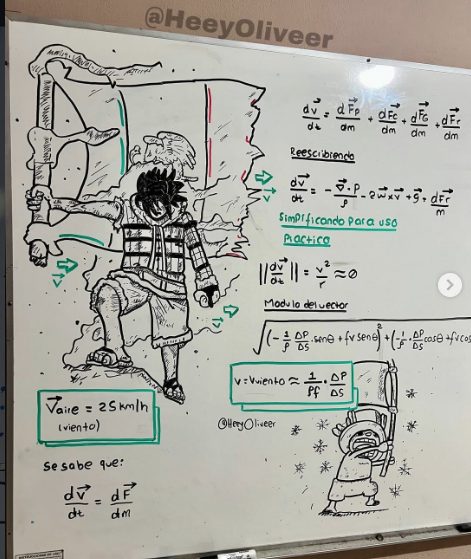 @HeeyOliveer
dv⃗/dt = dF⃗p/dm + dF⃗c/dm + dF⃗G/dm + dF⃗r/dm
Reescribiendo
dv⃗/dt = - ∇⃗·P/ρ - 2w⃗×v⃗ + g⃗ + dF⃗r/m
Simplificando para uso
Practico
||dv⃗/dt|| = v²/r ≈ 0
Modulo del vector
√(-1/ρ ΔP/ΔS · senθ + fv senθ)² + (-1/ρ · ΔP/ΔS cosθ + fv cos
v = Vviento ≈ 1/ρf · ΔP/ΔS
@HeeyOliveer
v⃗
v⃗
v⃗
V⃗aire = 25 km/h
(viento)
se sabe que:
dv⃗/dt = dF⃗/dm